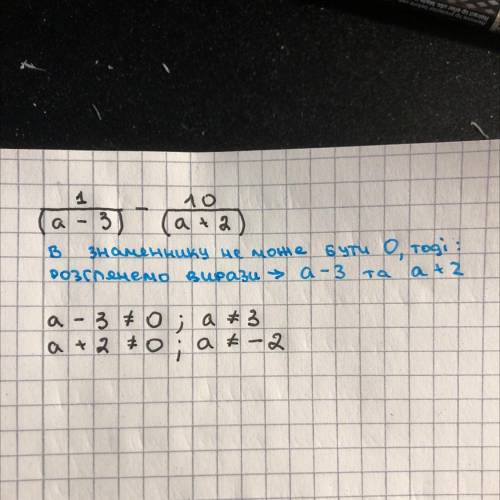 1/(a - 3) - 10/(a + 2)
В знаменнику не може бути 0, тоді:
розглянемо вирази → a-3 та a+2
a - 3 ≠ 0 ; a ≠ 3
a + 2 ≠ 0 ; a ≠ -2